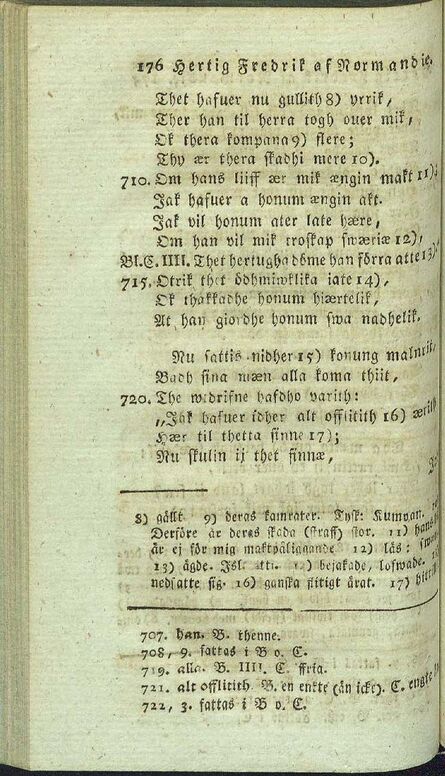 176 Hertig Fredrik af Normandie.
Thet hafuer nu gullith 8) yrrik,
Ther han til herra togh ouer mik,
Ok thera kompana 9) flere;
Thy ær thera skadhi mere 10).
710. Om hans liiff ær mik ængin makt 11);
Jak hafuer a honum ængin akt.
Jak vil honum ater late hære,
Om han vil mik troskap swæriæ 12),
Bl. C. IIII. Thet hertugha döme han förra atte 13),
715. Otrik thet ödhmiwklika iate 14),
Ok thakkadhe honum hiærtelik,
At han giordhe honum swa nadhelik.
Nu sattis nidher 15) konung malnrit,
Badh sina mæn alla koma thiit,
720. The wedrifne hafdho varith:
„Jak hafuer idher alt offlitith 16) ærith
Hær til thetta sinne 17);
Nu skulin ij thet finnæ,
8) gällt. 9) deras kamrater. Tysk: Kumpan.
Derföre är deras skada (straff) stor. 11) hans
är ej för mig maktpåliggande 12) läs:
13) ägde. Isl. atti. 14) bejakade, lofwade.
nedsatte sig. 16) ganska flitigt ärat. 17)
707. han. B. thenne.
708, 9. fattas i B o. C.
719. alla. B. IIII. C. ffria.
721. alt offlitith. B. en enkte (än icke). C. engte
722, 3. fattas i B o. C.